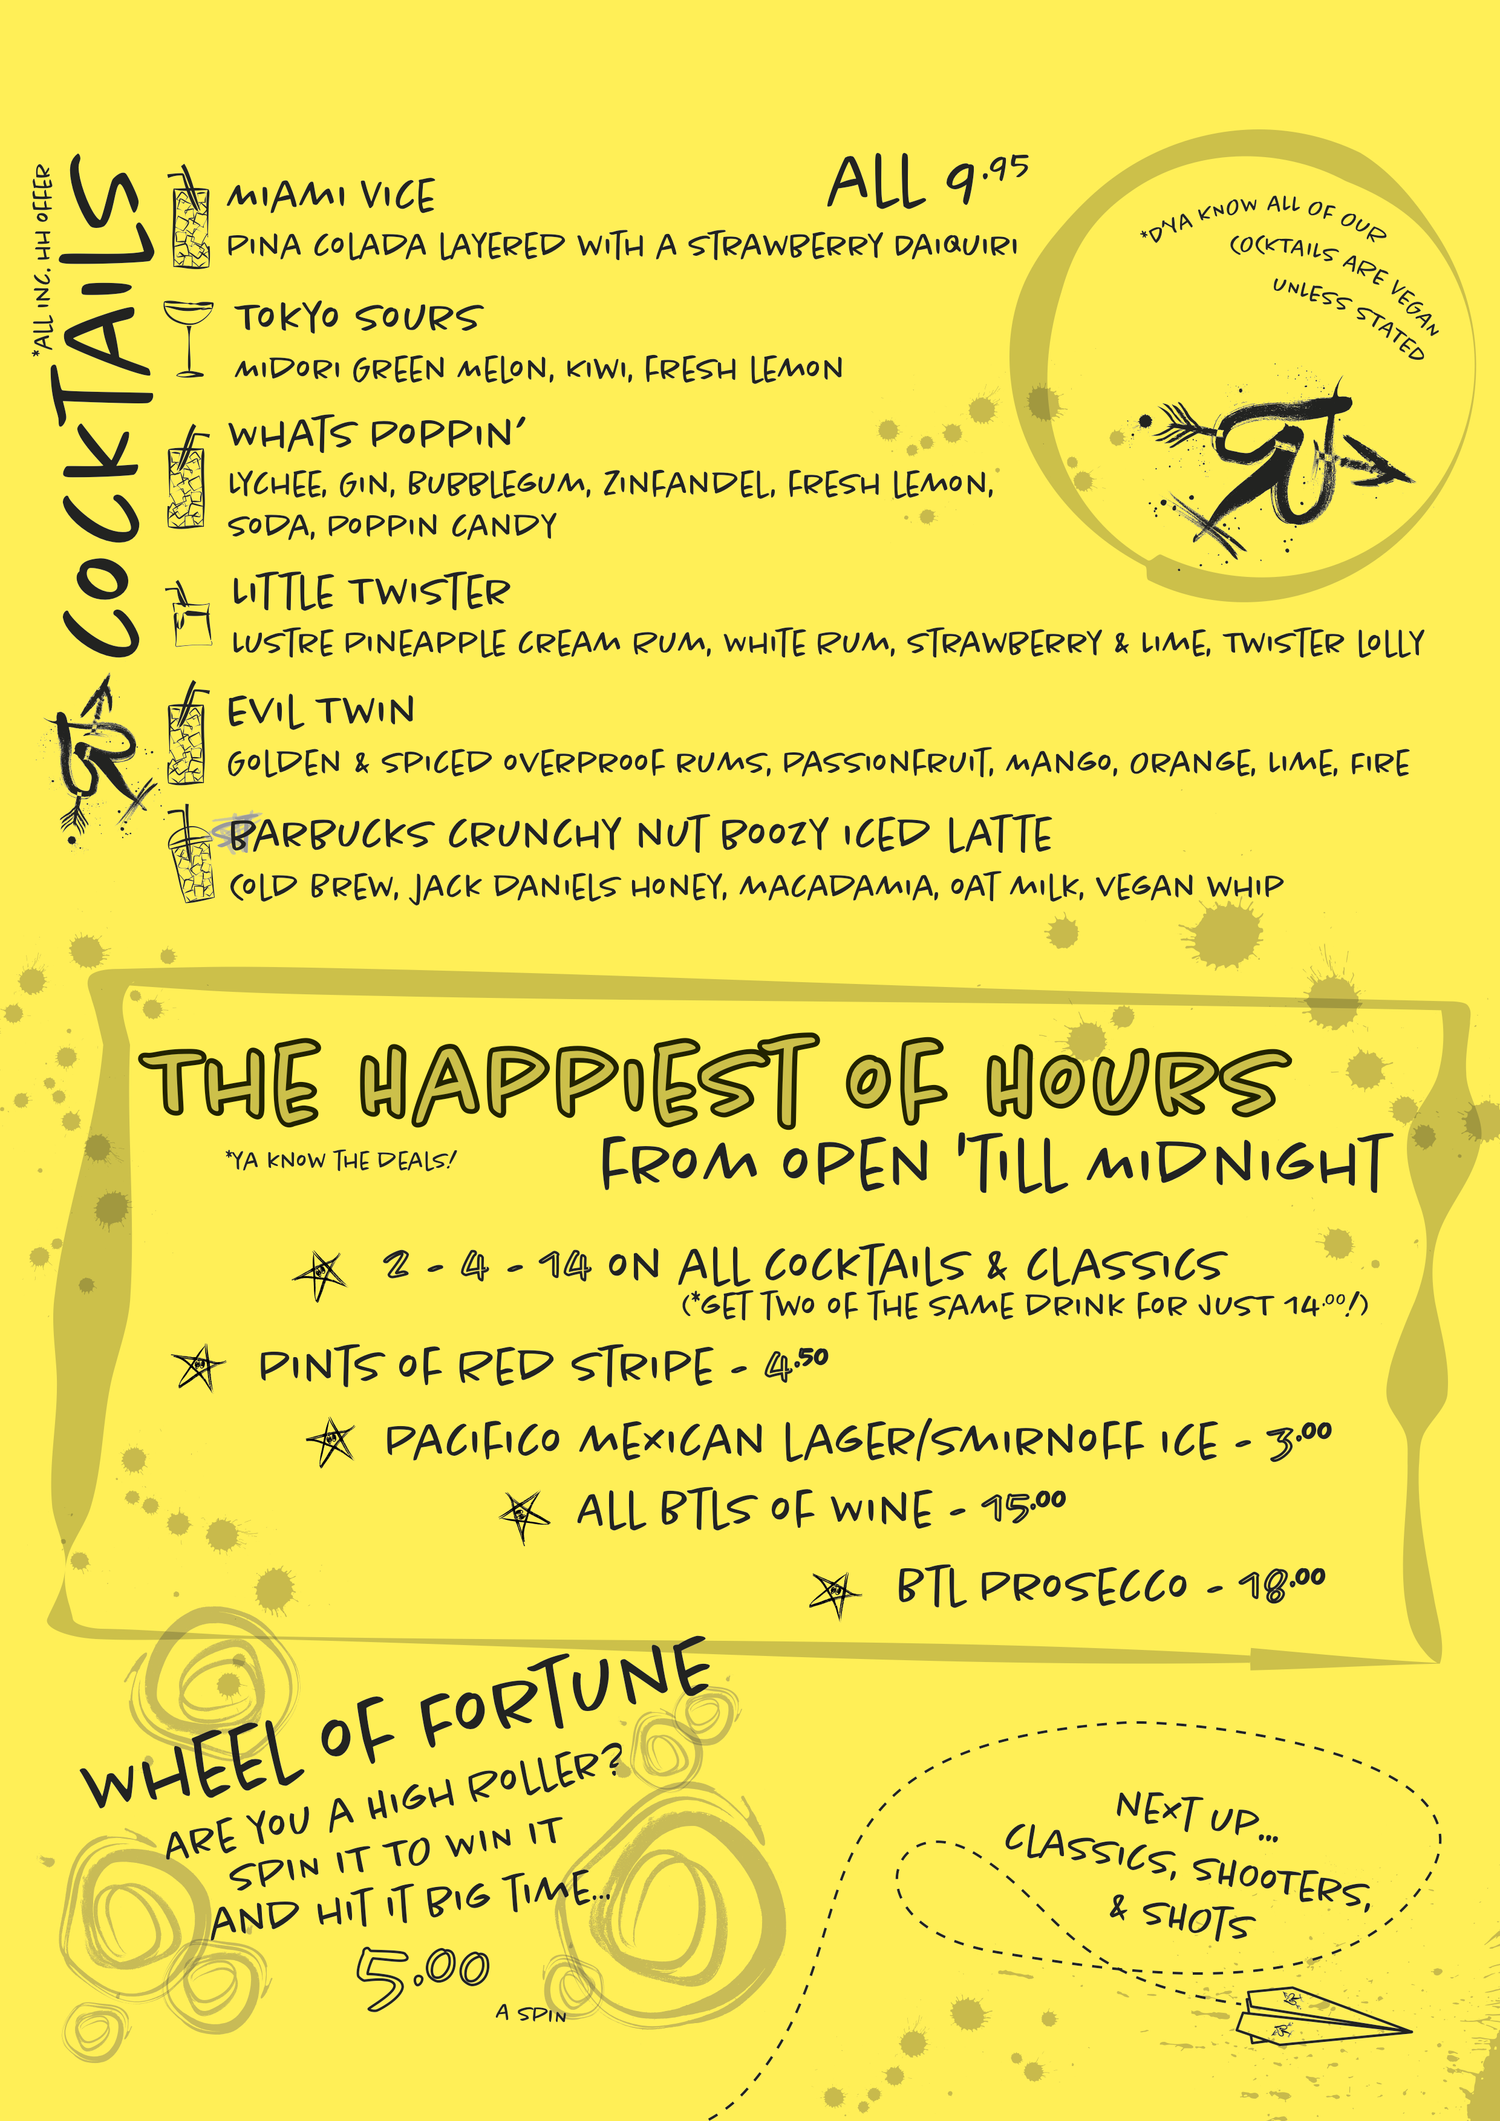 *ALL INC. HH OFFER
COCKTAILS
ALL 9.95
MIAMI VICE
PINA COLADA LAYERED WITH A STRAWBERRY DAIQUIRI
TOKYO SOURS
MIDORI GREEN MELON, KIWI, FRESH LEMON
WHATS POPPIN'
LYCHEE, GIN, BUBBLEGUM, ZINFANDEL, FRESH LEMON,
SODA, POPPIN CANDY
LITTLE TWISTER
LUSTRE PINEAPPLE CREAM RUM, WHITE RUM, STRAWBERRY & LIME, TWISTER LOLLY
EVIL TWIN
GOLDEN & SPICED OVERPROOF RUMS, PASSIONFRUIT, MANGO, ORANGE, LIME, FIRE
BARBUCKS CRUNCHY NUT BOOZY ICED LATTE
COLD BREW, JACK DANIELS HONEY, MACADAMIA, OAT MILK, VEGAN WHIP
*D'YA KNOW ALL OF OUR
COCKTAILS ARE VEGAN
UNLESS STATED
THE HAPPIEST OF HOURS
*YA KNOW THE DEALS!
FROM OPEN 'TILL MIDNIGHT
2 - 4 - 14 ON ALL COCKTAILS & CLASSICS
(*GET TWO OF THE SAME DRINK FOR JUST 14.00!)
PINTS OF RED STRIPE - 4.50
PACIFICO MEXICAN LAGER/SMIRNOFF ICE - 3.00
ALL BTLS OF WINE - 15.00
BTL PROSECCO - 18.00
WHEEL OF FORTUNE
ARE YOU A HIGH ROLLER?
SPIN IT TO WIN IT
AND HIT IT BIG TIME...
5.00
A SPIN
NEXT UP...
CLASSICS, SHOOTERS,
& SHOTS